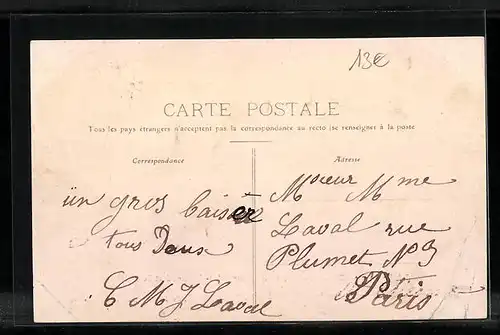 13€
CARTE POSTALE
Tous les pays étrangers n'acceptent pas la correspondance au recto (se renseigner à la poste
Correspondance
Adresse
un gros baiser
a tous Deux
C M J Laval
Mocieur Mme
Laval rue
Plumet N 9
Paris